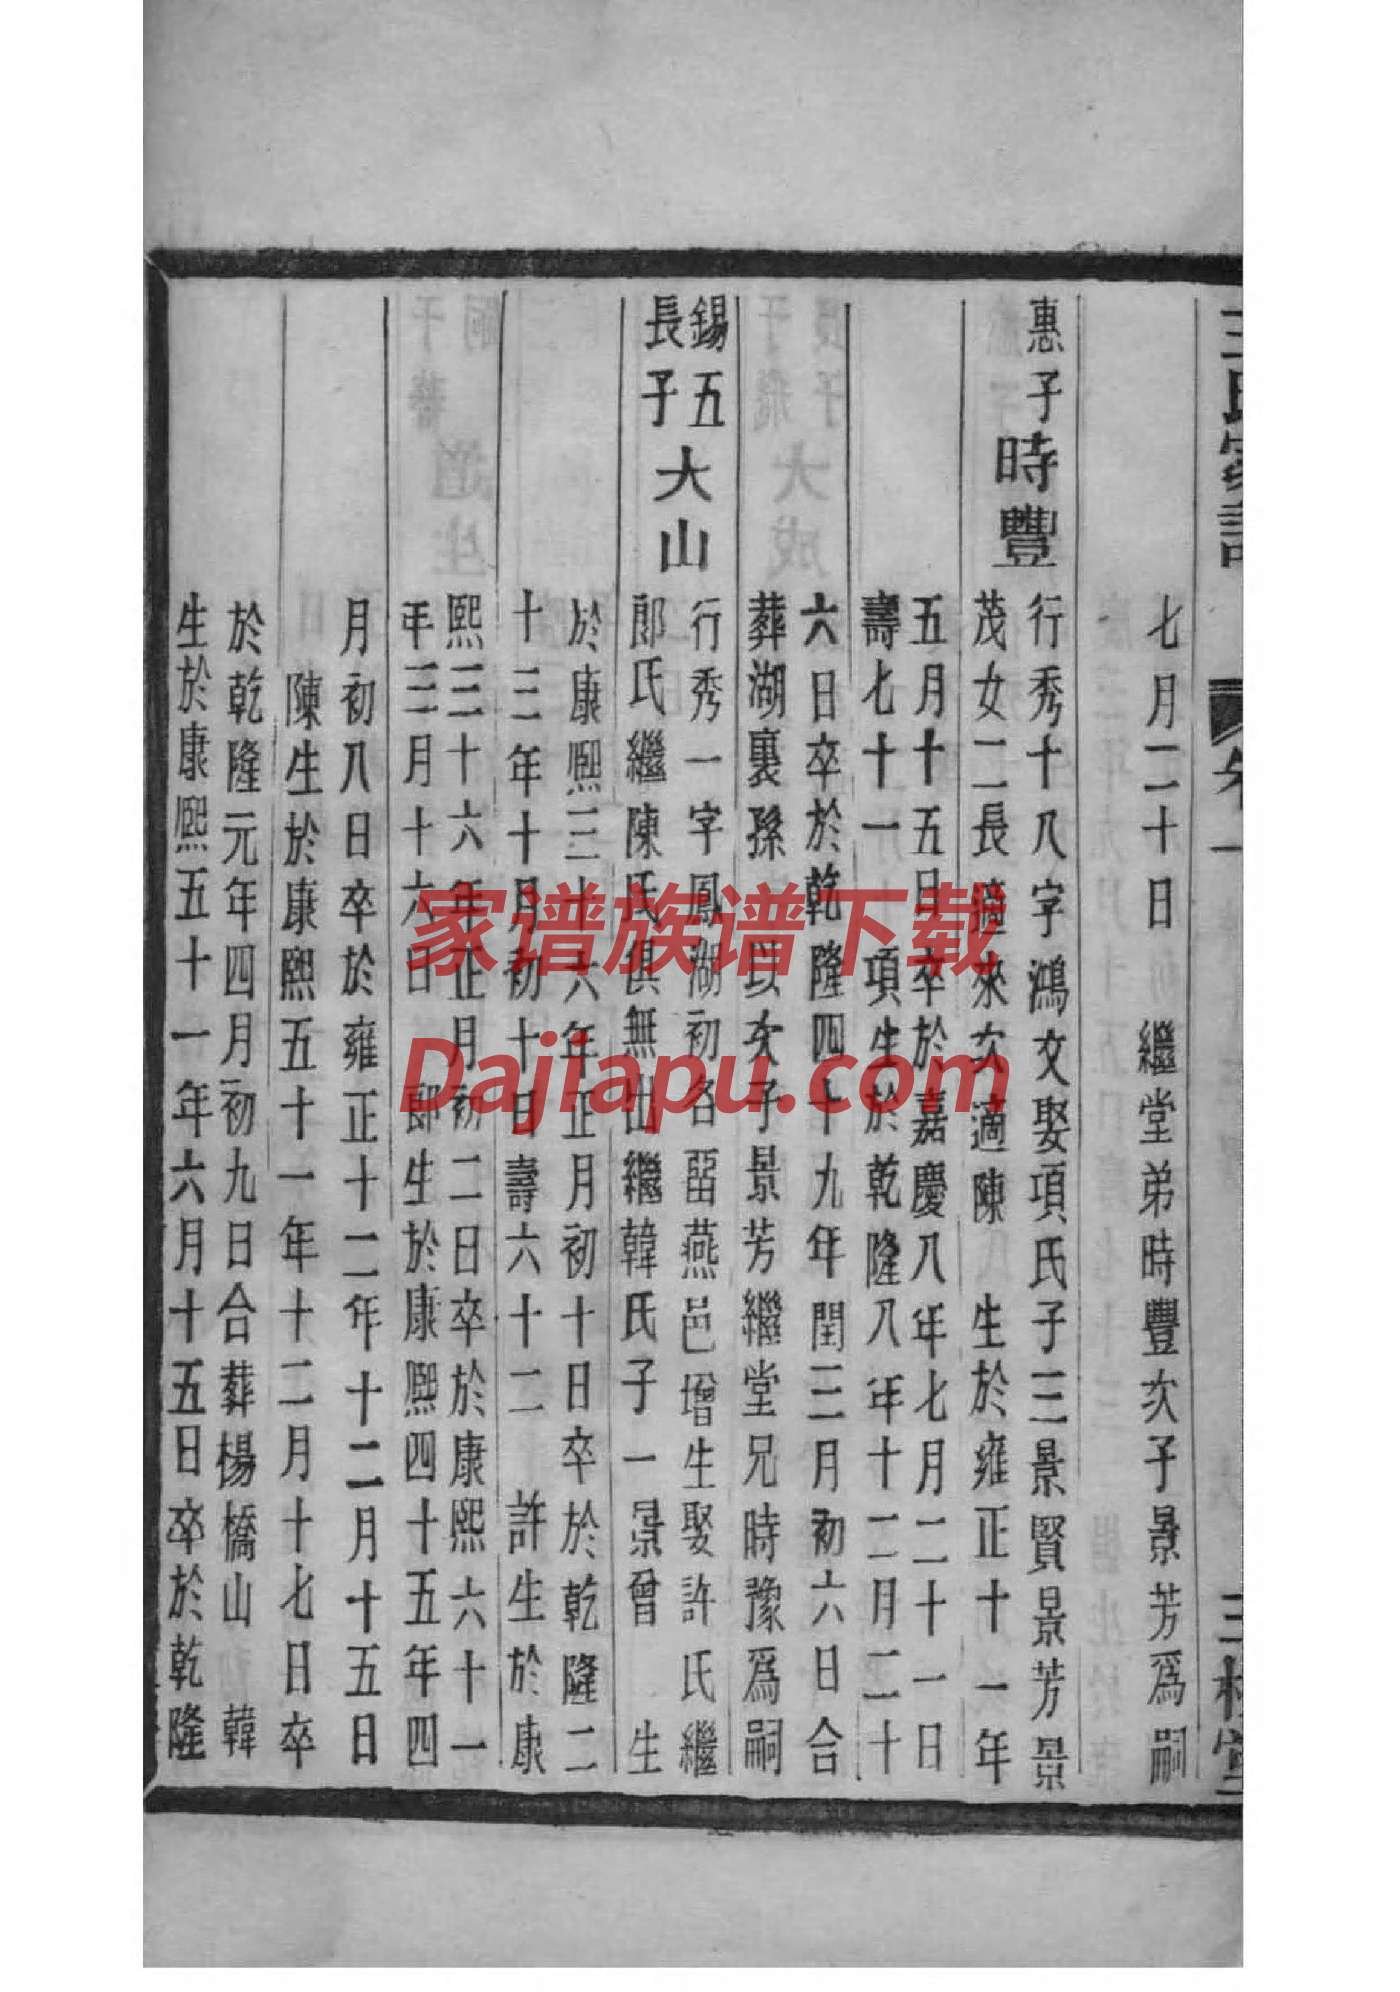 王氏家譜 卷一 三槐堂
七月二十日 繼堂弟時豐次子景芳爲嗣
惠子
時豐
行秀十八字鴻文娶項氏子三景賢景芳景
茂女二長適來次適陳 生於雍正十一年
五月十五日卒於嘉慶八年七月二十一日
壽七十一 項生於乾隆八年十二月二十
六日卒於乾隆四十九年閏三月初六日合
葬湖裏孫 以次子景芳繼堂兄時豫爲嗣
錫五
長子
大山
行秀一字鳳湖初名畱燕邑增生娶許氏繼
郎氏繼陳氏俱無出繼韓氏子一景曾 生
於康熙三十六年正月初十日卒於乾隆二
十三年十月初十日壽六十二 許生於康
熙三十六年正月初二日卒於康熙六十一
年三月十六日 郎生於康熙四十五年四
月初八日卒於雍正十二年十二月十五日
陳生於康熙五十一年十二月十七日卒
於乾隆元年四月初九日合葬楊橋山 韓
生於康熙五十一年六月十五日卒於乾隆
家谱族谱下载
Dajiapu.com